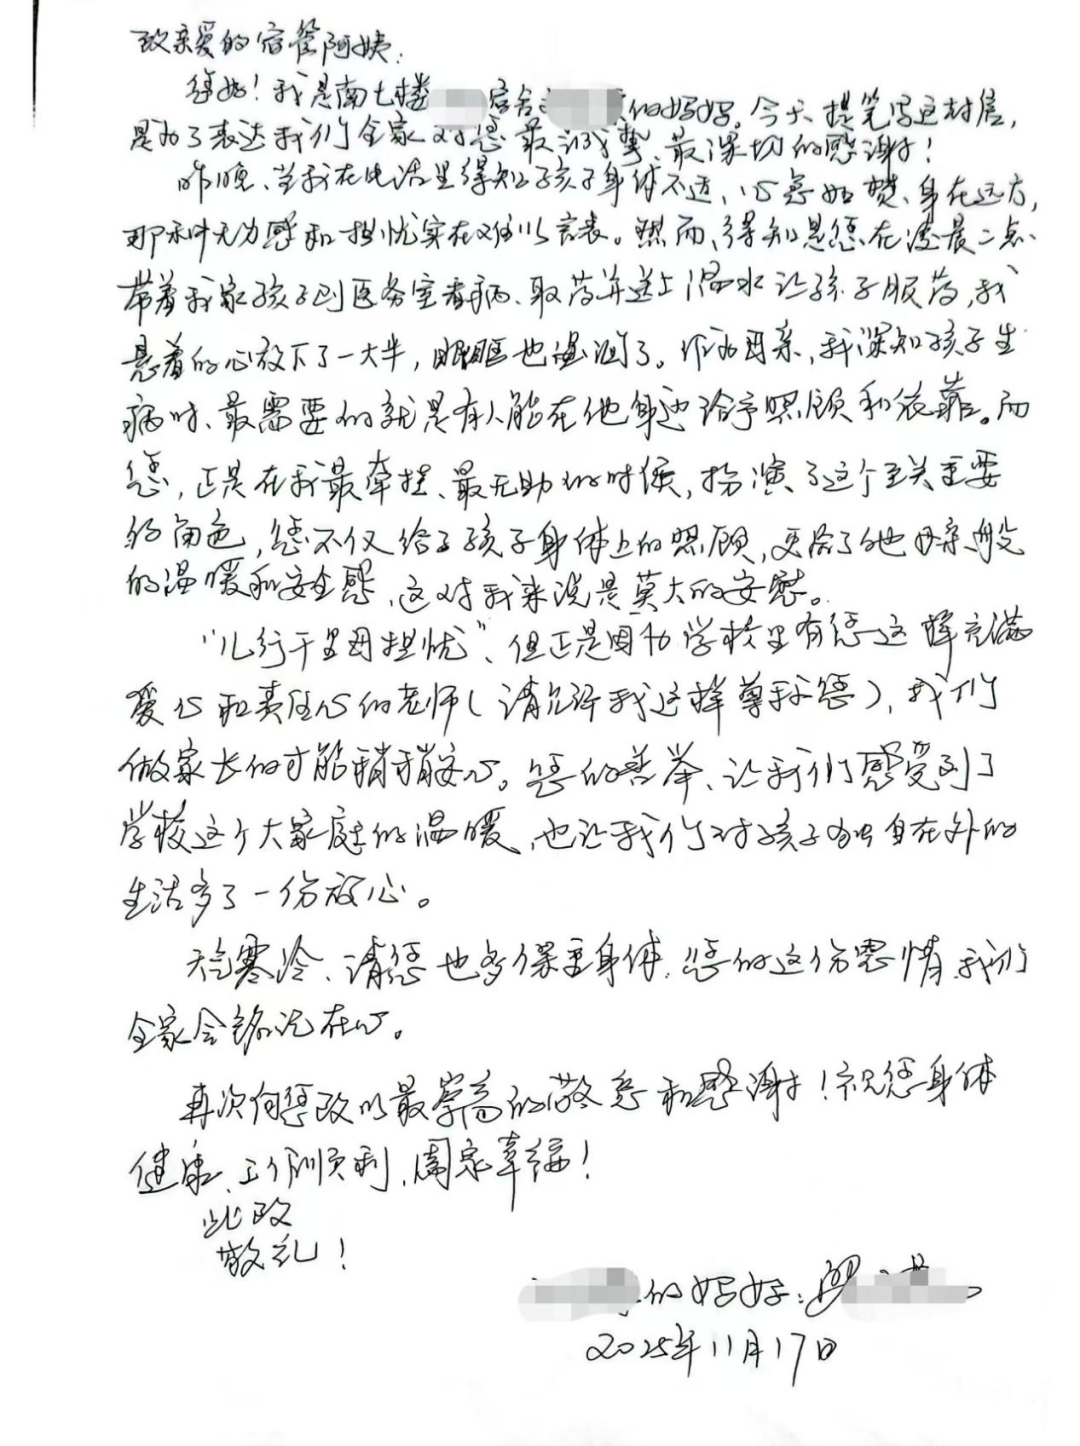 致亲爱的宿管阿姨:
您好！我是南七楼 宿舍 的妈妈。今天提笔写这封信，
是为了表达我们全家对您最诚挚、最深切的感谢！
昨晚、当我在电话里得知孩子身体不适，心急如焚、身在远方，
那种无力感和担忧实在难以言表。然而、得知是您在凌晨二点、
带着我家孩子到医务室看病、取药并送上温水让孩子服药，我
悬着的心放下了一大半，眼眶也湿润了。作为母亲，我深知孩子生
病时、最需要的就是有人能在他身边给予照顾和依靠。而
您，正是在我最牵挂、最无助的时候，扮演了这个至关主要
的角色，您不仅给了孩子身体上的照顾，更给了他母亲般
的温暖和安全感，这对我来说是莫大的安慰。
“儿行千里母担忧”、但正是因为学校里有您这样充满
爱心和责任心的老师(请允许我这样尊称您)，我们
做家长的才能稍稍安心。您的善举、让我们感受到了
学校这个大家庭的温暖，也让我们对孩子独自在外的
生活多了一份放心。
天气寒冷、请您也多保重身体，您的这份恩情，我们
全家会铭记在心。
再次向您致以最崇高的敬意和感谢！祝您身体
健康、工作顺利，阖家幸福！
此致
敬礼！
的妈妈:
2025年11月17日